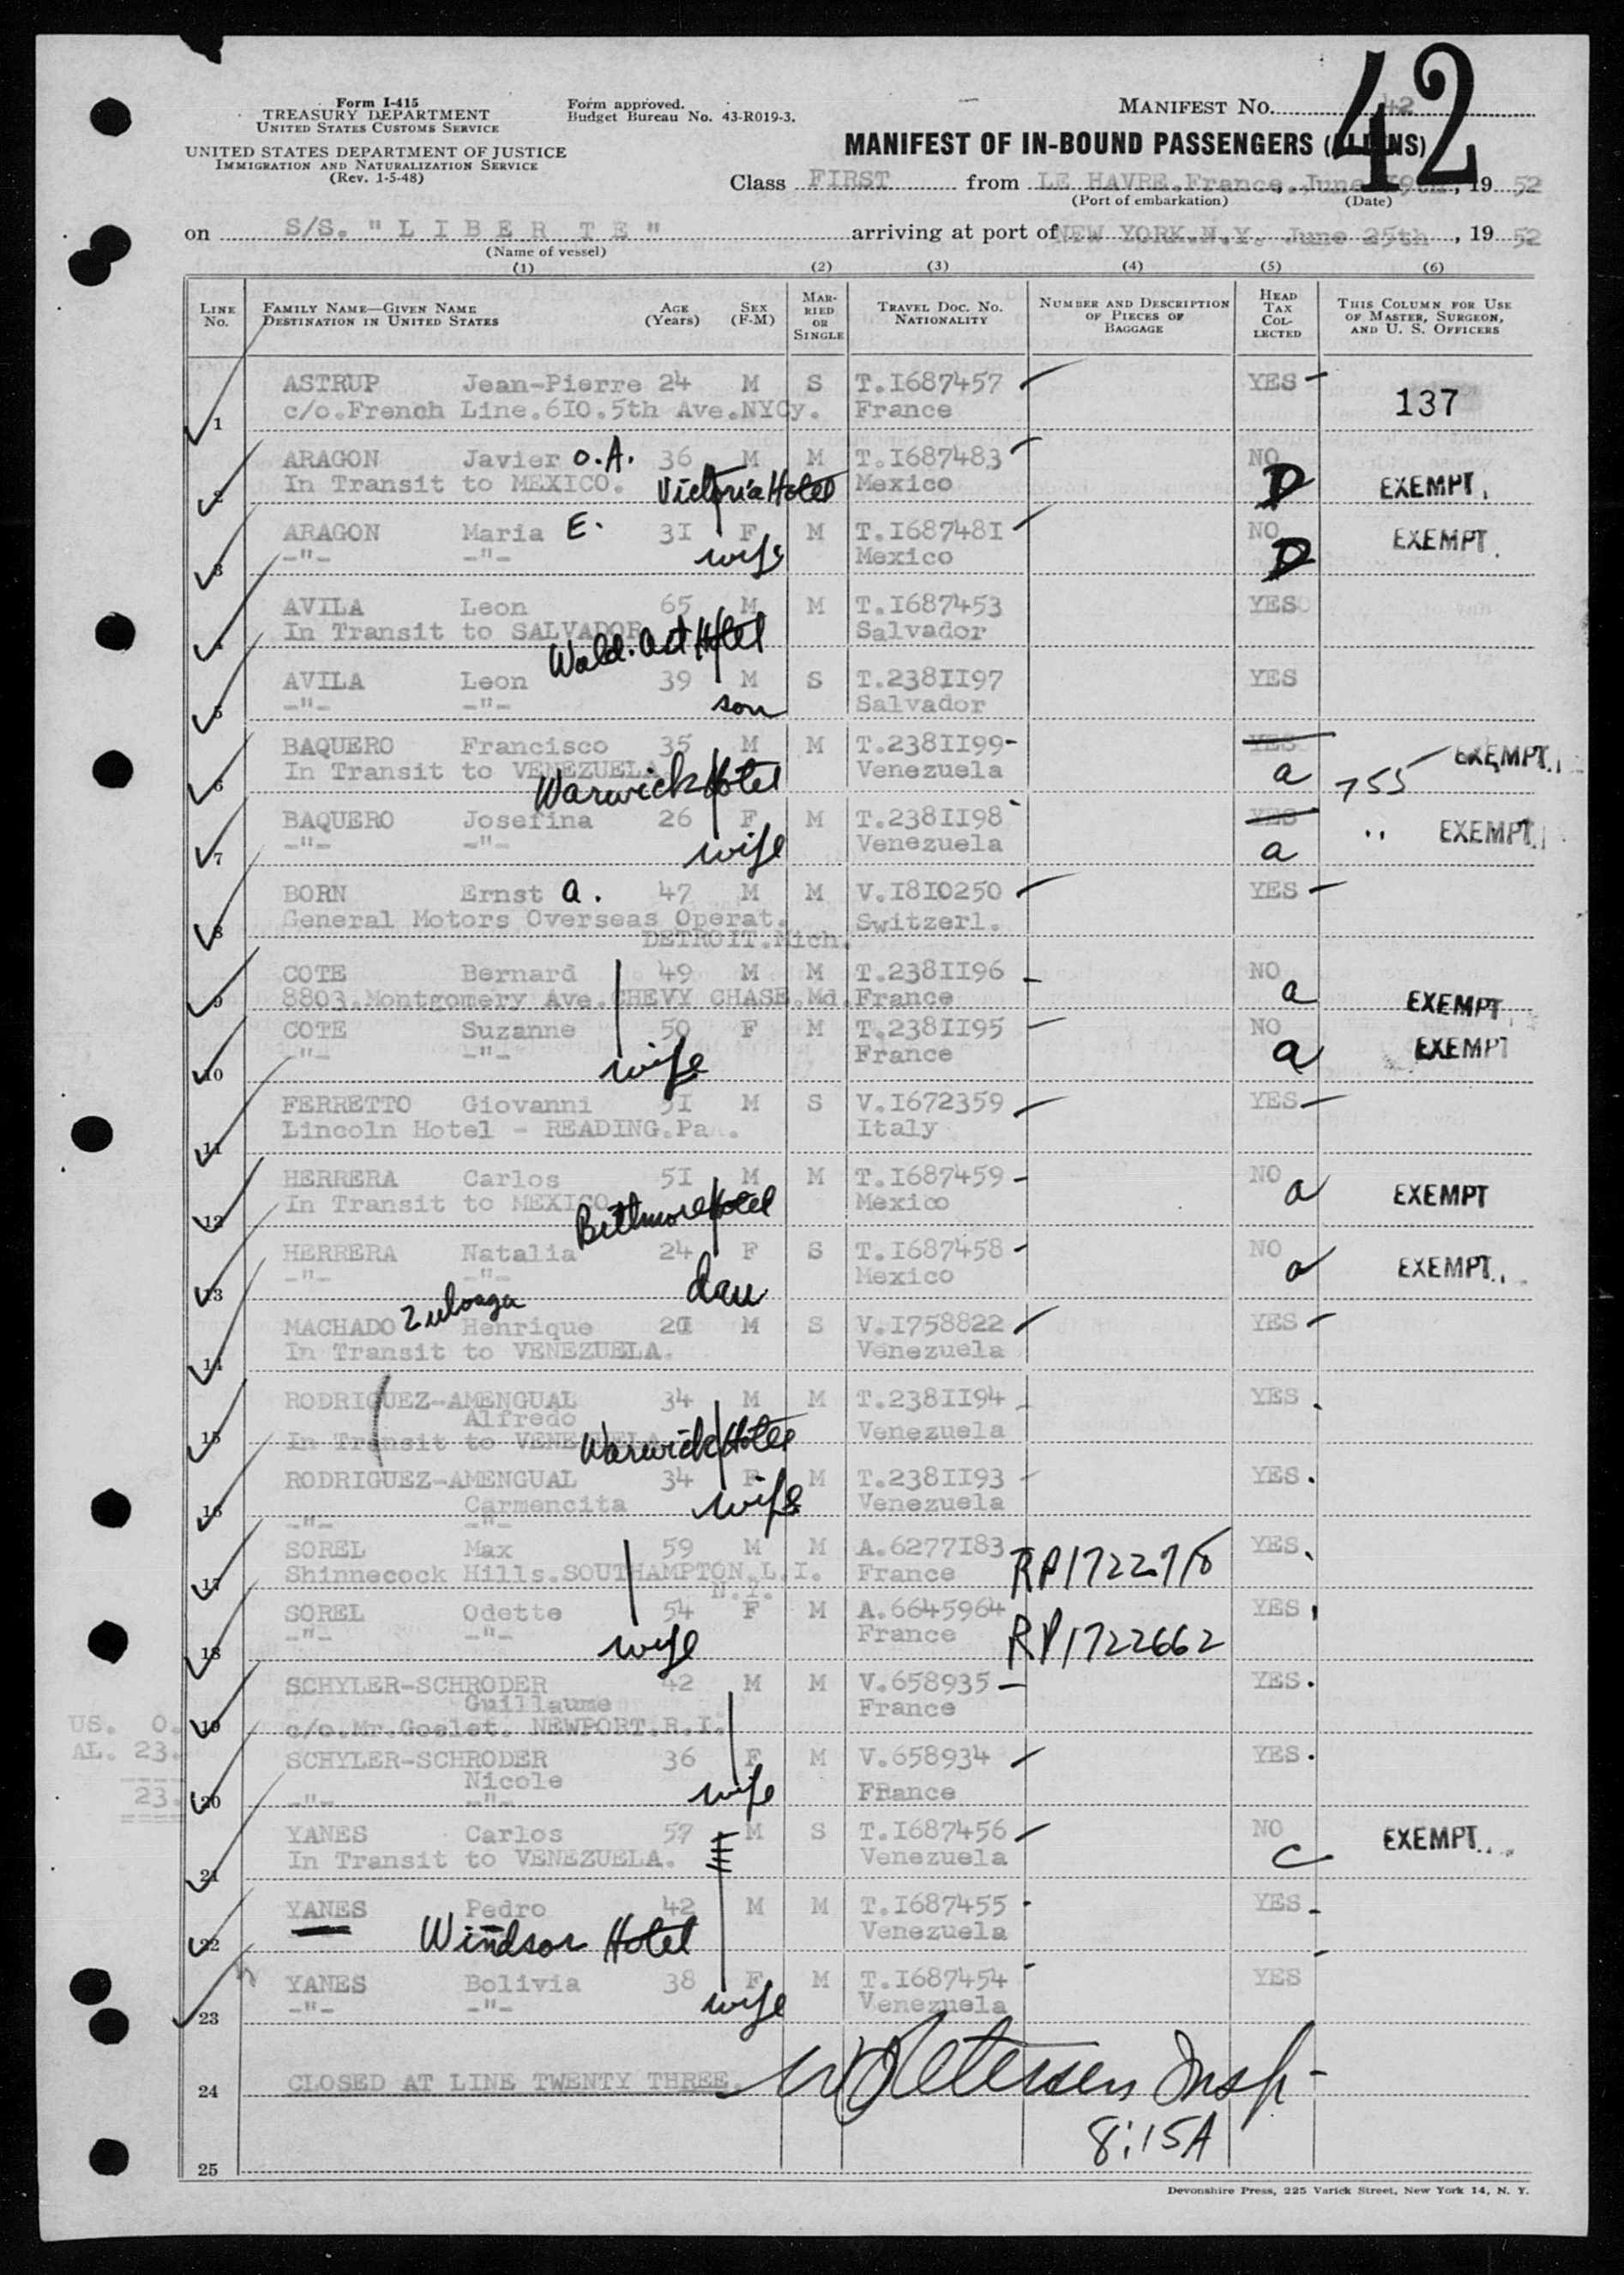 Form I-415
TREASURY DEPARTMENT
UNITED STATES CUSTOMS SERVICE
UNITED STATES DEPARTMENT OF JUSTICE
IMMIGRATION AND NATURALIZATION SERVICE
(Rev. 1-5-48)
Form approved.
Budget Bureau No. 43-R019-3.
MANIFEST NO. 42
42
MANIFEST OF IN-BOUND PASSENGERS (ALIENS)
Class FIRST from LE HAVRE.France., June 19th, 19 52
(Port of embarkation) (Date)
on S/S. "LIBERTE" arriving at port of NEW YORK.N.Y. June 25th, 19 52
(Name of vessel)
(1) (2) (3) (4) (5) (6)
LINE No. FAMILY NAME—GIVEN NAME DESTINATION IN UNITED STATES AGE (Years) SEX (F-M) MARRIED OR SINGLE TRAVEL DOC. NO. NATIONALITY NUMBER AND DESCRIPTION OF PIECES OF BAGGAGE HEAD TAX COLLECTED THIS COLUMN FOR USE OF MASTER, SURGEON, AND U. S. OFFICERS
1 ASTRUP Jean-Pierre 24 M S T.I687457 YES 137
c/o.French Line.6I0.5th Ave.NYCy. France
2 ARAGON Javier O.A. 36 M M T.I687483 NO D EXEMPT
In Transit to MEXICO. Victoria Hotel Mexico
3 ARAGON Maria E. 3I F M T.I68748I NO D EXEMPT
-"- -"- wife Mexico
4 AVILA Leon 65 M M T.I687453 YES
In Transit to SALVADOR Wald. Ast Hotel Salvador
5 AVILA Leon 39 M S T.238II97 YES
-"- -"- son Salvador
6 BAQUERO Francisco 35 M M T.238II99 YES a 755 EXEMPT
In Transit to VENEZUELA Warwick Hotel Venezuela
7 BAQUERO Josefina 26 F M T.238II98 YES a " EXEMPT
-"- -"- wife Venezuela
8 BORN Ernst A. 47 M M V.I8I0250 YES
General Motors Overseas Operat. Switzerl.
DETROIT.Mich.
9 COTE Bernard 49 M M T.238II96 NO a EXEMPT
8803.Montgomery Ave.CHEVY CHASE.Md. France
10 COTE Suzanne 50 F M T.238II95 NO a EXEMPT
-"- -"- wife France
11 FERRETTO Giovanni 5I M S V.I672359 YES
Lincoln Hotel - READING.Pa. Italy
12 HERRERA Carlos 5I M M T.I687459 NO a EXEMPT
In Transit to MEXICO Biltmore Hotel Mexico
13 HERRERA Natalia 24 F S T.I687458 NO a EXEMPT
-"- -"- dau Mexico
14 MACHADO Zuloaga Henrique M S V.I758822 YES
In Transit to VENEZUELA. Venezuela
15 RODRIGUEZ-AMENGUAL 34 M M T.238II94 YES
Alfredo
In Transit to VENEZUELA Warwick Hotel Venezuela
16 RODRIGUEZ-AMENGUAL 34 F M T.238II93 YES
Carmencita wife Venezuela
-"- -"-
17 SOREL Max 59 M M A.6277I83 RP1722718 YES
Shinnecock Hills.SOUTHAMPTON.L.I. France
N.Y.
18 SOREL Odette 54 F M A.6645964 RP1722662 YES
-"- -"- wife France
19 SCHYLER-SCHRODER 42 M M V.658935 YES
Guillaume France
c/o.Mr.Goelet. NEWPORT.R.I.
US. 0.
AL. 23.
23.
20 SCHYLER-SCHRODER 36 F M V.658934 YES
Nicole FRance
-"- -"- wife
21 YANES Carlos 57 M S T.I687456 NO C EXEMPT
In Transit to VENEZUELA. Venezuela
22 YANES Pedro 42 M M T.I687455 YES
Windsor Hotel Venezuela
23 YANES Bolivia 38 F M T.I687454 YES
-"- -"- wife Venezuela
24 CLOSED AT LINE TWENTY THREE. Petersen Insp
8:15A
25
Devonshire Press, 225 Varick Street, New York 14, N. Y.